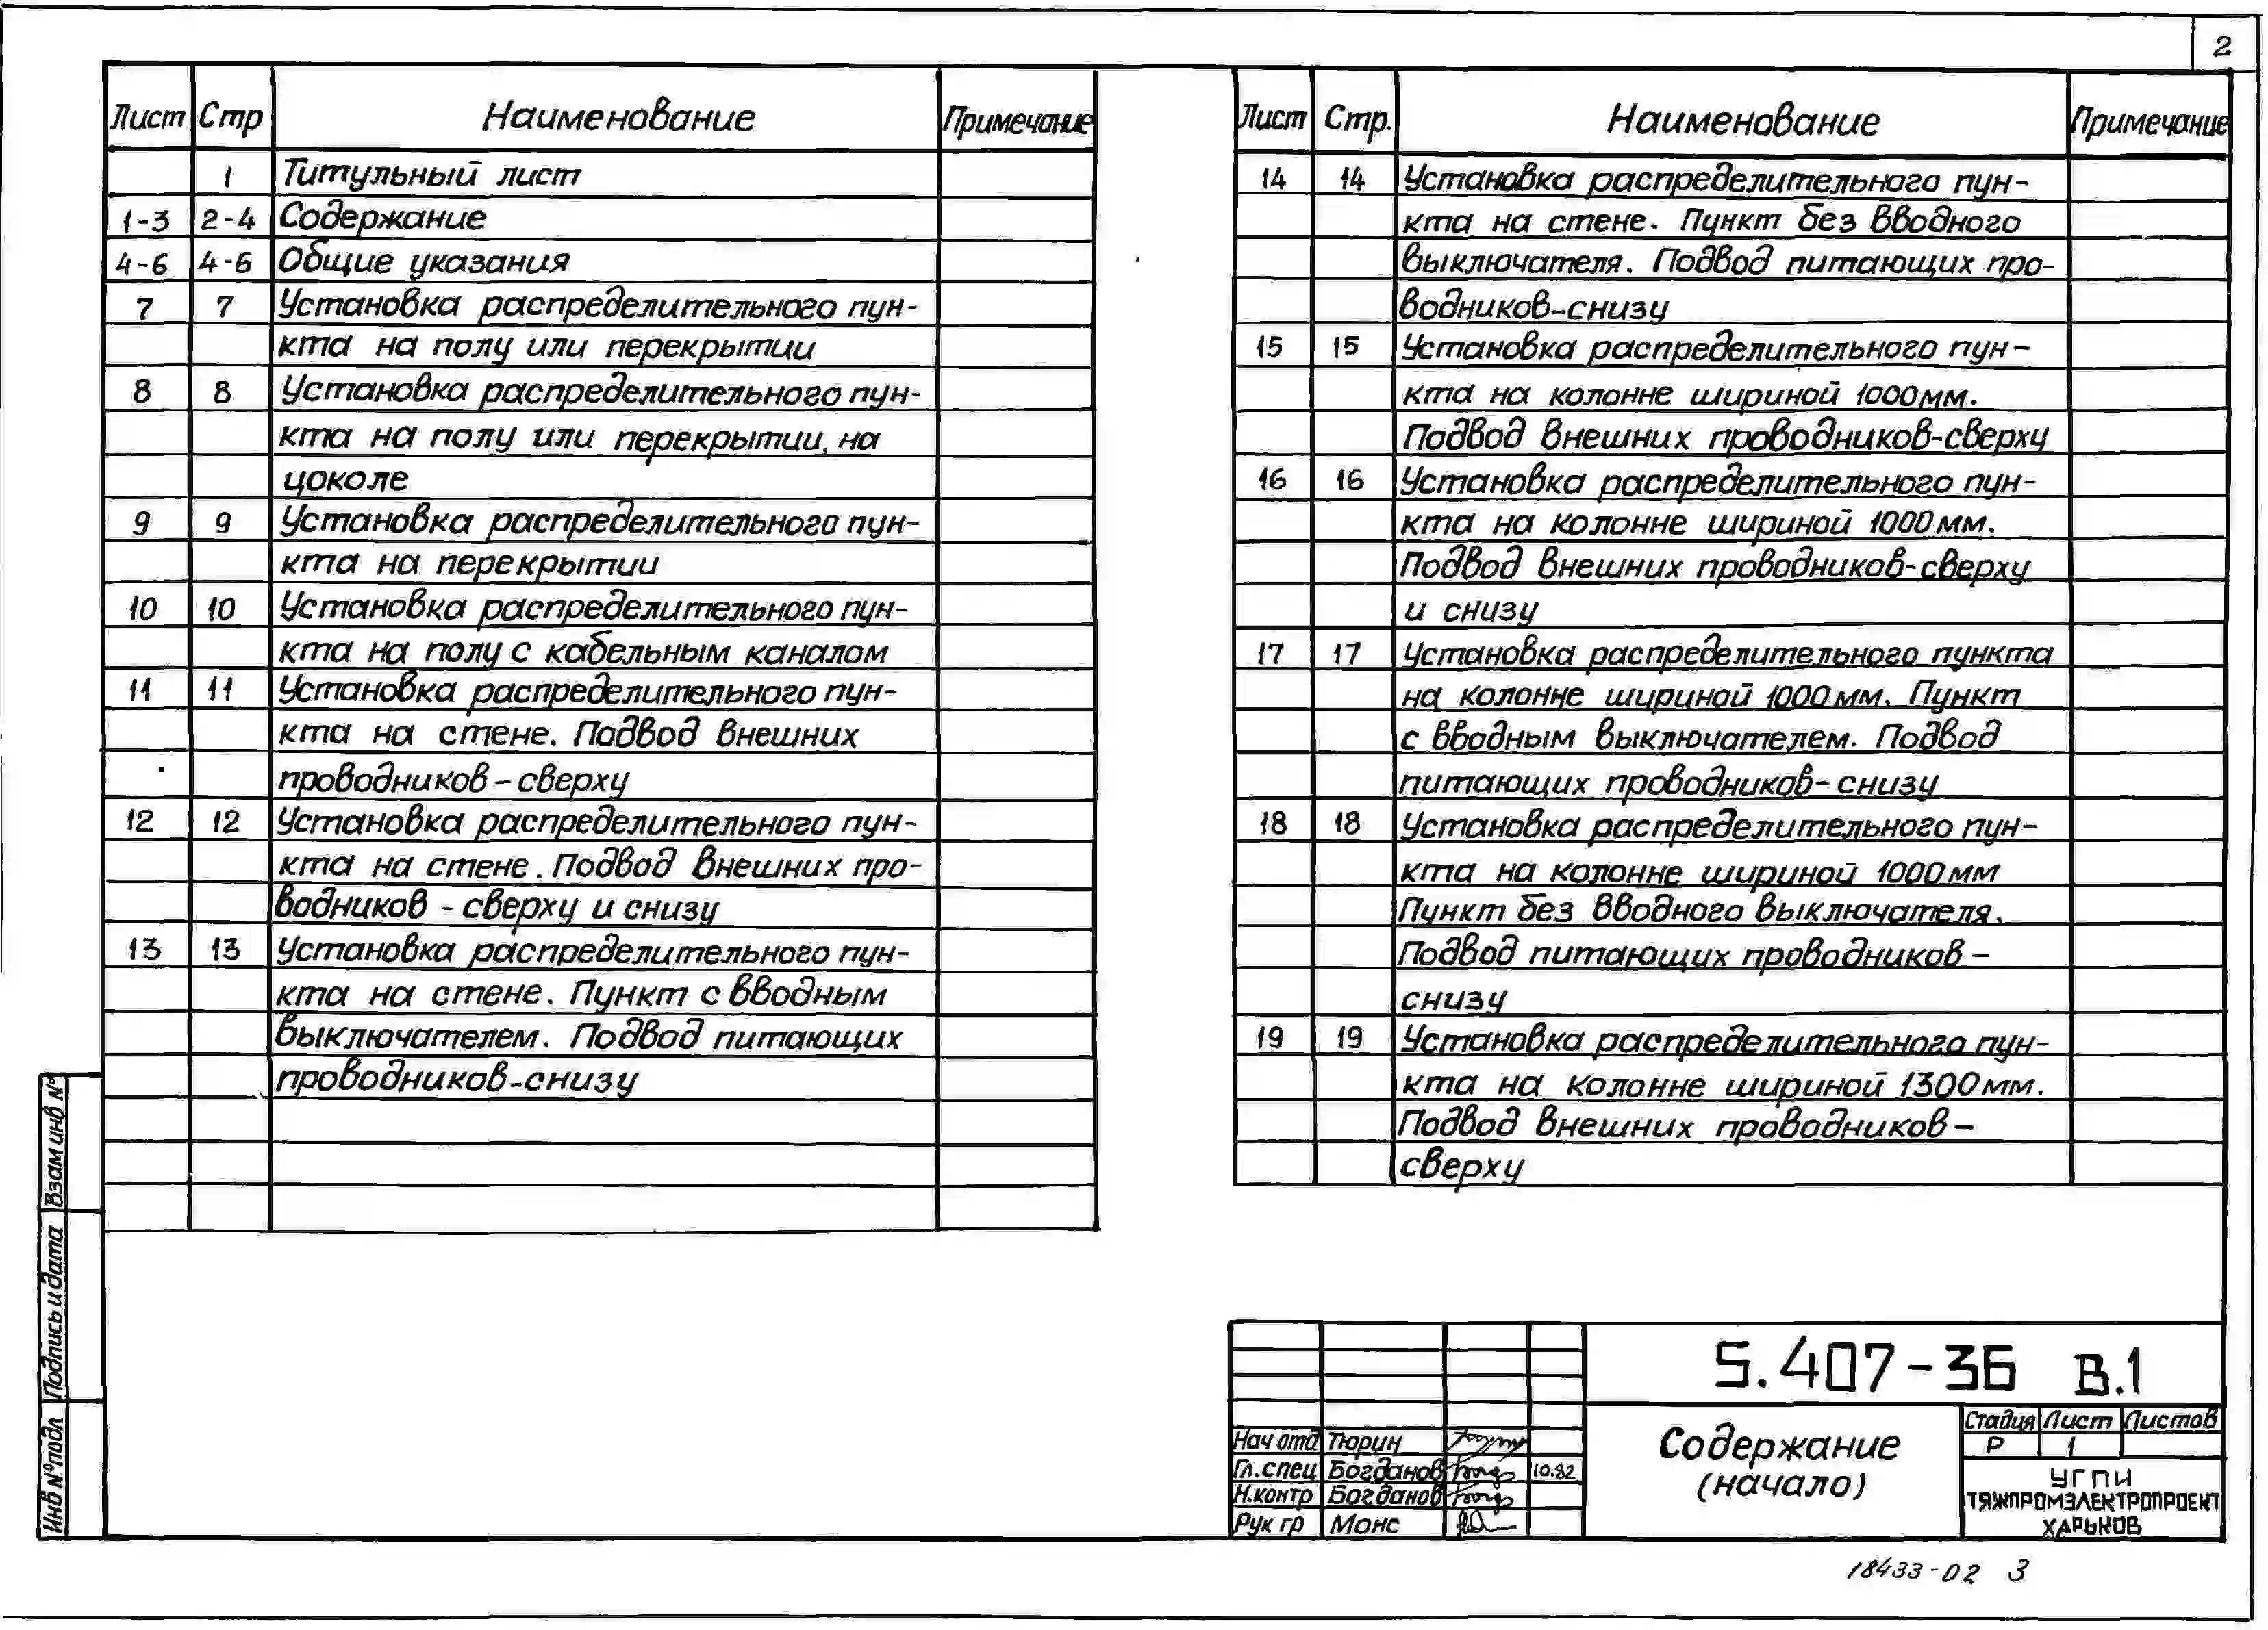 2
Лист Стр Наименование Примечание
1 Титульный лист
1-3 2-4 Содержание
4-6 4-6 Общие указания
7 7 Установка распределительного пун-
кта на полу или перекрытии
8 8 Установка распределительного пун-
кта на полу или перекрытии, на
цоколе
9 9 Установка распределительного пун-
кта на перекрытии
10 10 Установка распределительного пун-
кта на полу с кабельным каналом
11 11 Установка распределительного пун-
кта на стене. Подвод внешних
проводников - сверху
12 12 Установка распределительного пун-
кта на стене. Подвод внешних про-
водников - сверху и снизу
13 13 Установка распределительного пун-
кта на стене. Пункт с вводным
выключателем. Подвод питающих
проводников-снизу
Лист Стр. Наименование Примечание
14 14 Установка распределительного пун-
кта на стене. Пункт без вводного
выключателя. Подвод питающих про-
водников-снизу
15 15 Установка распределительного пун-
кта на колонне шириной 1000мм.
Подвод внешних проводников-сверху
16 16 Установка распределительного пун-
кта на колонне шириной 1000мм.
Подвод внешних проводников-сверху
и снизу
17 17 Установка распределительного пункта
на колонне шириной 1000мм. Пункт
с вводным выключателем. Подвод
питающих проводников-снизу
18 18 Установка распределительного пун-
кта на колонне шириной 1000мм
Пункт без вводного выключателя.
Подвод питающих проводников -
снизу
19 19 Установка распределительного пун-
кта на колонне шириной 1300мм.
Подвод внешних проводников -
сверху
Взам инв №
Подпись и дата
Инв № подл
5.407-36 В.1
Содержание
(начало)
Стадия Лист Листов
Р 1
УГПИ
ТЯЖПРОМЭЛЕКТРОПРОЕКТ
ХАРЬКОВ
Нач отд Тюрин
Гл.спец Богданов 10.82
Н.контр Богданов
Рук гр Монс
18433-02 3